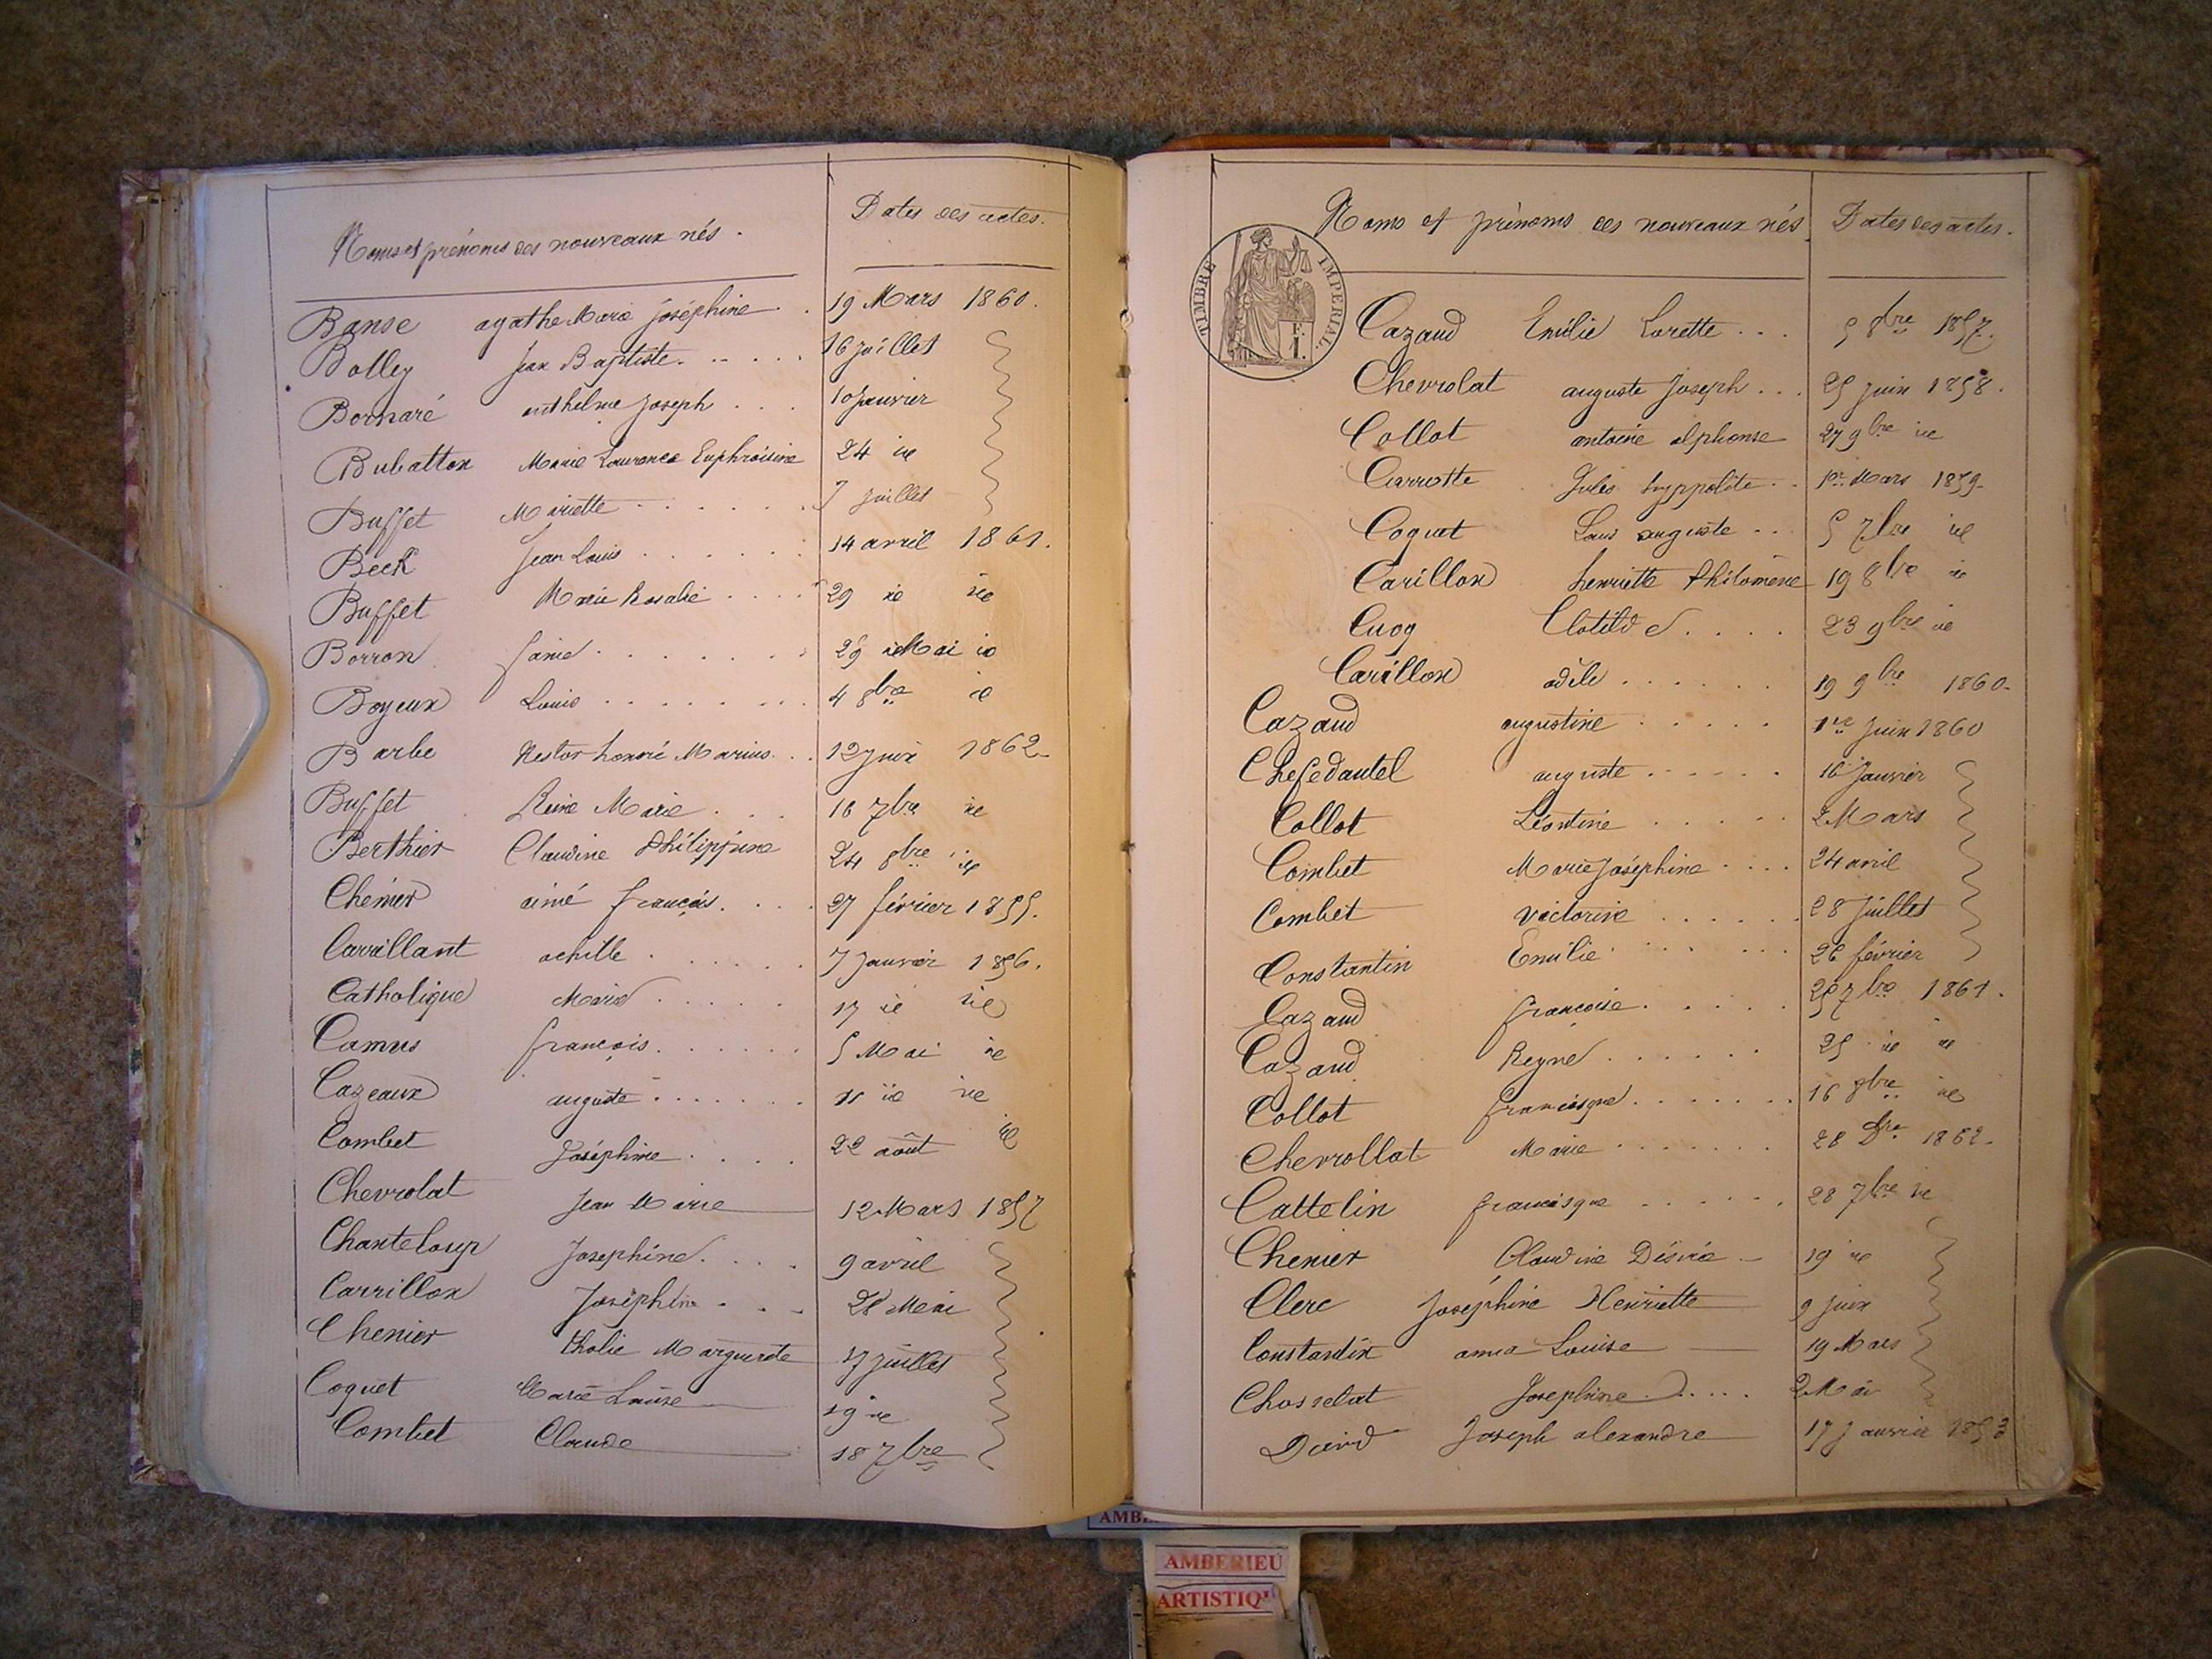 Noms et prénoms des nouveaux nés. Dates des actes.
Banse agathe Marie Joséphine . . 19 Mars 1860.
Bolley Jean Baptiste. . . . . . 16 juillet
Bornaré anthelme Joseph . . . 10 Janvier
Bubatton Marie Laurence Euphroisine 24 ie
Buffet Mariette . . . . . . . 7 Juillet
Beck Jean Louis . . . . . . 14 avril 1861.
Buffet Marie Rosalie . . . . 29 ie ie
Borron . . . . . . . 29 Mai ie
Boyeux Louis . . . . . . . 4 8bre ie
Barbe Nestor honoré Marius. . . 12 juin 1862
Buffet Reine Marie . . . 16 7bre ie
Berthier Claudine Philippine 24 8bre ie
Chenier aimé françois. . . . 27 février 1855.
Carrillant achille . . . . . . 7 Janvier 1856.
Catholique Marie . . . . . 17 ie ie
Camus françois. . . . . . 5 Mai ie
Cazeaux auguste . . . . . . . 11 ie ie
Combet Joséphine . . . . 22 août ie
Chevrolat Jean Marie 12 Mars 1857
Chanteloup Josephine. . . . 9 avril
Carrillon Joséphine . . . 28 Mai
Chenier Marguerite 17 juillet
Coquet Marie Louise 19 ie
Combet Claude 18 7bre
Noms et prénoms des nouveaux nés. Dates des actes.
TIMBRE IMPERIAL.
Cazaud Emilie Lorette . . . 5 8bre 1857.
Chevrolat auguste Joseph . . . 25 Juin 1858.
Collot antoine alphonse 27 9bre ie
Carrotte Jules hyppolite . . 1er Mars 1859
Coquet Louis auguste . . . 5 7bre ie
Carillon henriette Philomène 19 8bre ie
Cuog Clotilde . . . . 23 9bre ie
Carillon adèle . . . . . . 19 9bre 1860.
Cazaud augustine . . . . . 1re Juin 1860
Chefedautel auguste . . . . . 16 Janvier
Collot Léontine . . . . . 2 Mars
Combet Marie Joséphine . . . . 24 avril
Combet Victorine . . . . . . 28 Juillet
Constantin Emilie . . . . . . 26 février
Cazaud françoise. . . . . 25 7bre 1861.
Cazaud Reyne . . . . . . 25 ie ie
Collot francisque . . . . . . . 16 9bre ie
Chevrollat Marie . . . . . . . 28 1862.
Cattelin francisque . . . . . . 28 7bre ie
Chenier Claudine Désirée 19 ie
Clerc Joséphine Henriette 9 Juin
Constantin anna Louise 19 Mars
Chosselat Josephine . . . . . 2 Mai
David Joseph alexandre 17 Janvier 1853
AMBERIEU
ARTISTIQ